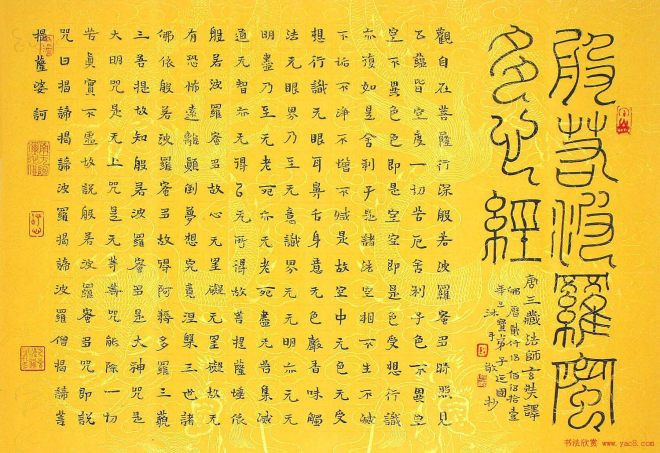 般若波羅蜜
多心經
唐三藏法師玄奘譯
佛曆貳仟伍佰伍拾壹
年三寶弟子國
沐手敬抄
觀自在菩薩行深般若波羅蜜多時照見
五蘊皆空度一切苦厄舍利子色不異空
空不異色色即是空空即是色受想行識
亦復如是舍利子是諸法空相不生不滅
不垢不淨不增不減是故空中无色无受
想行識无眼耳鼻舌身意无色聲香味觸
法无眼界乃至无意識界无无明亦无无
明盡乃至无老死亦无老死盡无苦集滅
道无智亦无得以无所得故菩提薩埵依
般若波羅蜜多故心无罣礙无罣礙故无
有恐怖遠離顛倒夢想究竟涅槃三世諸
佛依般若波羅蜜多故得阿耨多羅三藐
三菩提故知般若波羅蜜多是大神咒是
大明咒是无上咒是无等等咒能除一切
苦真實不虛故說般若波羅蜜多咒即說
咒曰揭諦揭諦波羅揭諦波羅僧揭諦菩
提薩婆訶
书法欣赏 www.yac8.com